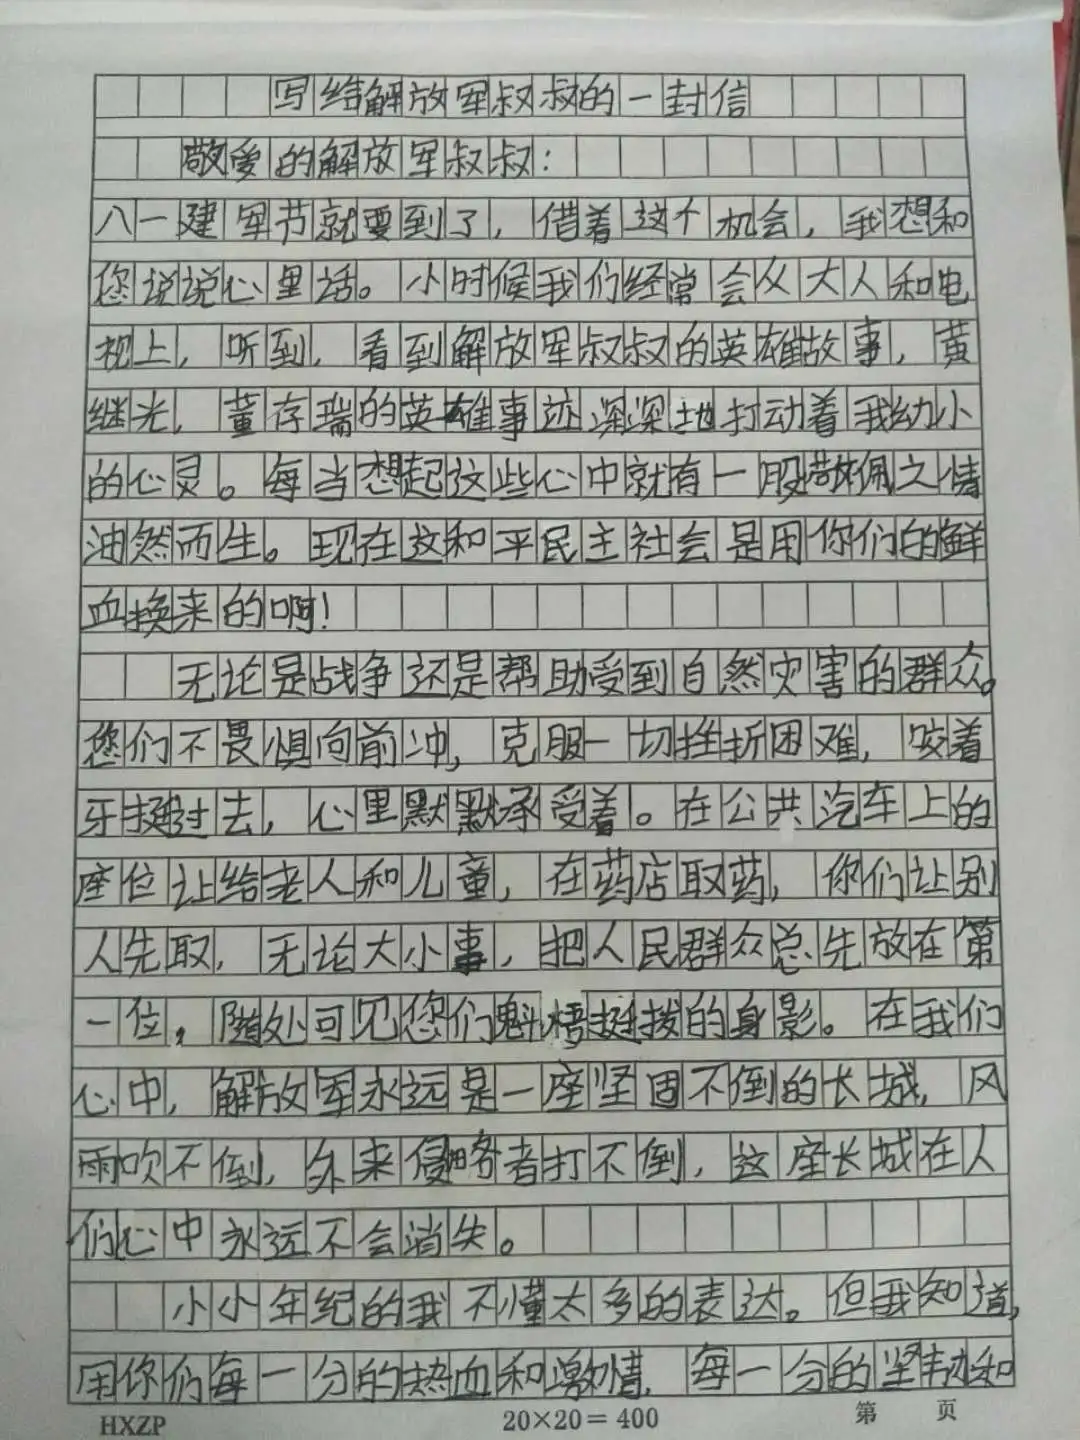 写给解放军叔叔的一封信
敬爱的解放军叔叔：
八一建军节就要到了，借着这个机会，我想和
您说说心里话。小时候我们经常会从大人和电
视上，听到，看到解放军叔叔的英雄故事，黄
继光，董存瑞的英雄事迹深深地打动着我幼小
的心灵。每当想起这些心中就有一股敬佩之情
油然而生。现在这和平民主社会是用你们的鲜
血换来的啊！
无论是战争还是帮助受到自然灾害的群众。
您们不畏惧向前冲，克服一切挫折困难，咬着
牙挺过去，心里默默承受着。在公共汽车上的
座位让给老人和儿童，在药店取药，你们让别
人先取，无论大小事，把人民群众总先放在第
一位，随处可见您们魁梧挺拔的身影。在我们
心中，解放军永远是一座坚固不倒的长城，风
雨吹不倒，外来侵略者打不倒，这座长城在人
们心中永远不会消失。
小小年纪的我不懂太多的表达。但我知道，
用你们每一分的热血和激情，每一分的坚韧和
HXZP
20×20=400
第 页